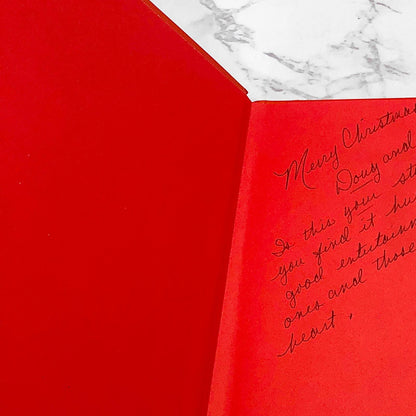 Merry Christmas
Doug and
Is this your st
you find it hu
good entertainm
ones and those
heart.